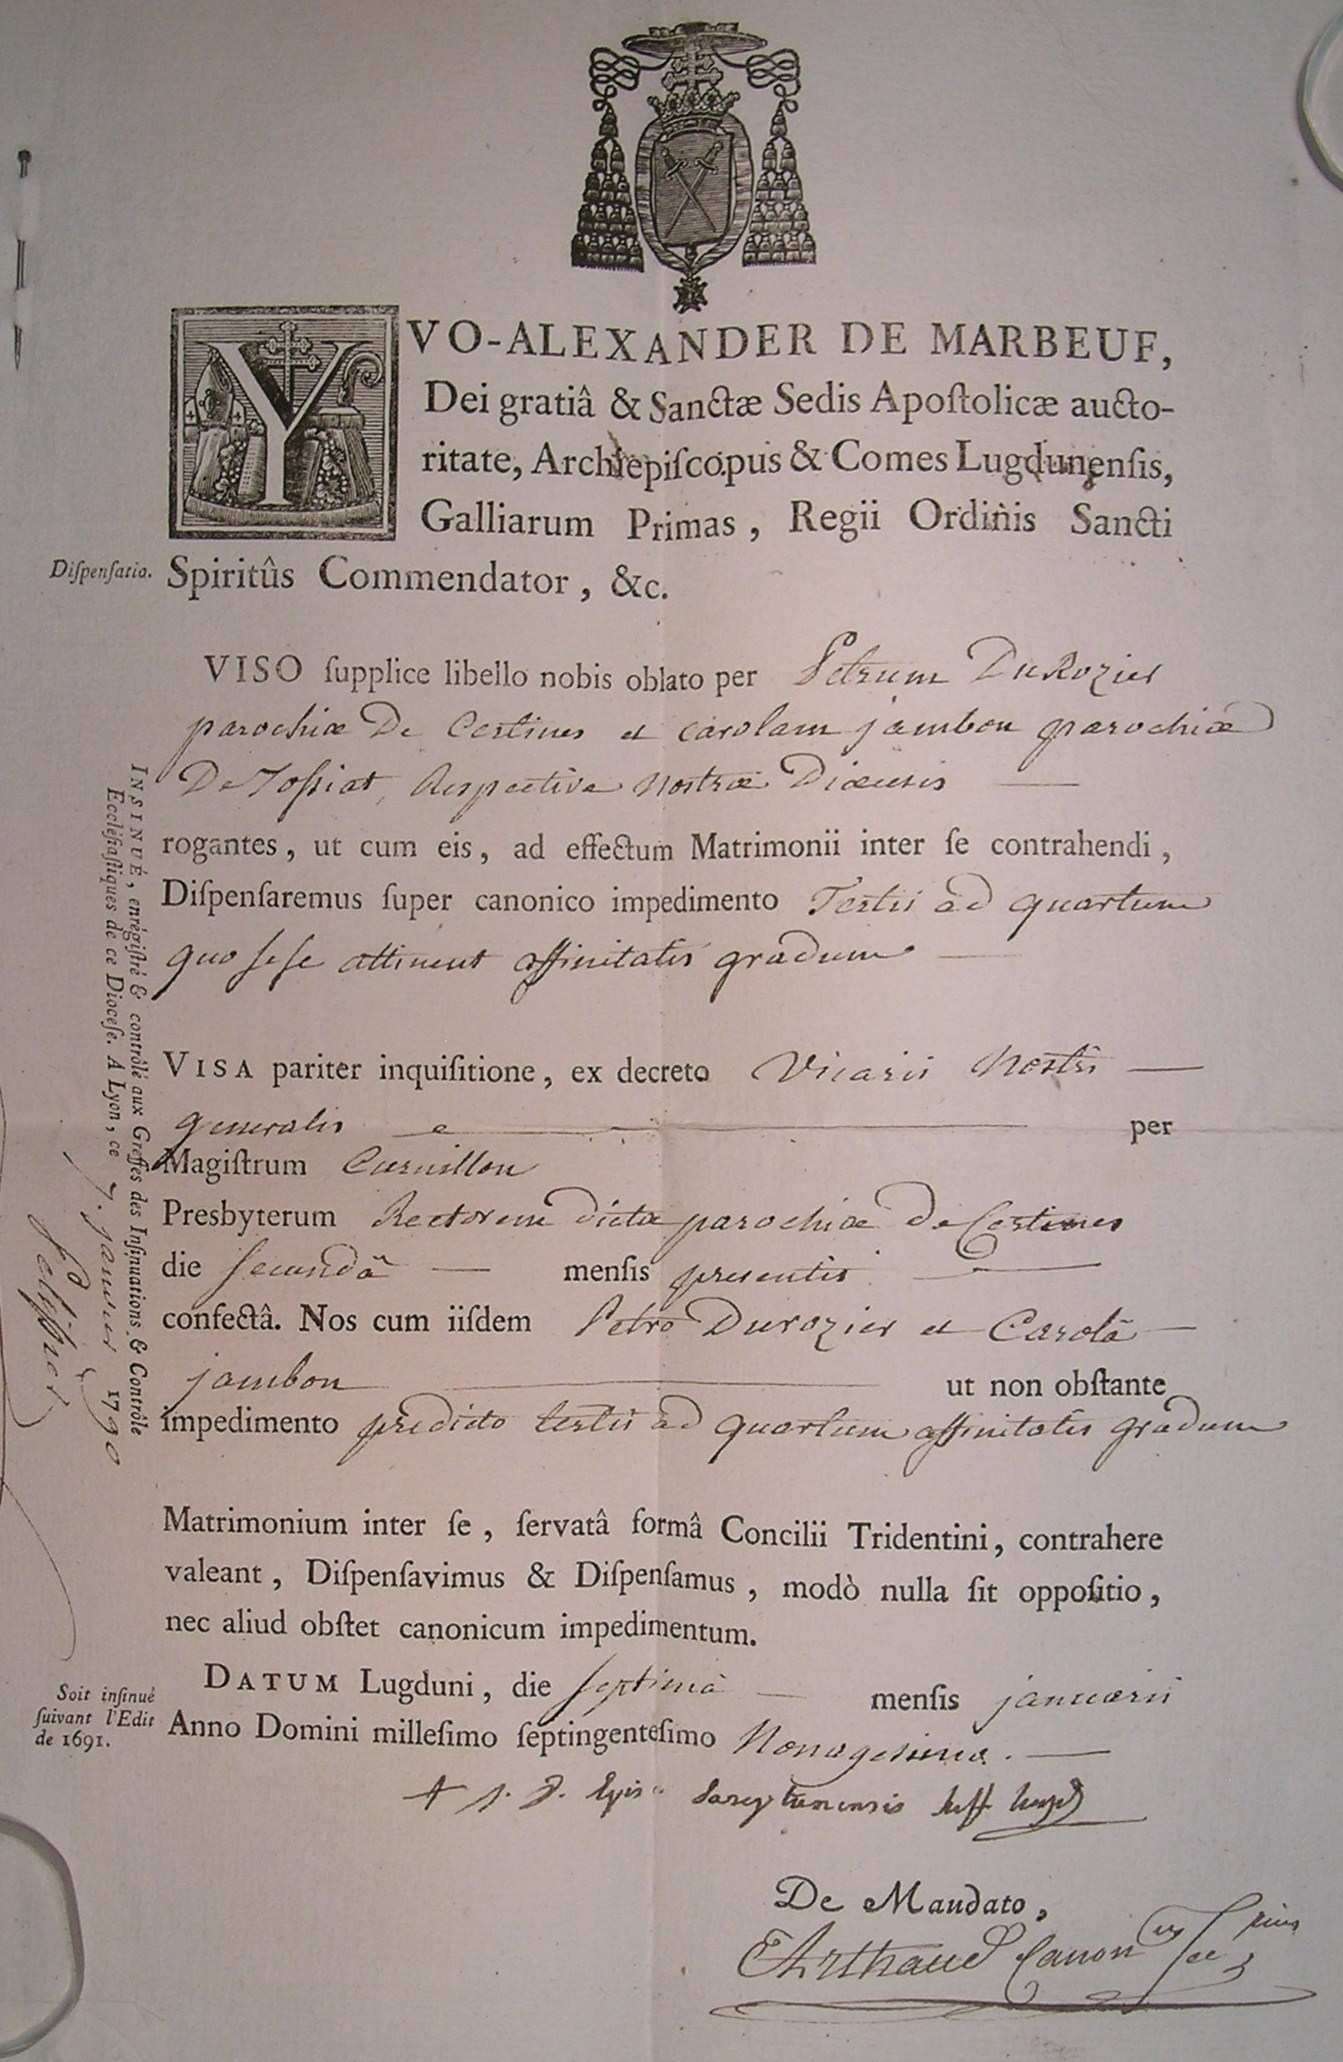 YVO-ALEXANDER DE MARBEUF,
Dei gratiâ & Sanctæ Sedis Apoſtolicæ aucto-
ritate, Archiepiſcopus & Comes Lugdunenſis,
Galliarum Primas, Regii Ordinis Sancti
Diſpenſatio.
Spiritûs Commendator, &c.
VISO ſupplice libello nobis oblato per Petrum DuRozier
parochiæ De Certines et carolam jambon parochiæ
De Toſsiat, Respective Nostræ Diœcesis
rogantes, ut cum eis, ad effectum Matrimonii inter ſe contrahendi,
Diſpenſaremus ſuper canonico impedimento Tertii ad quartum
quo ſeſe attinent affinitatis gradum
VISA pariter inquiſitione, ex decreto Vicarii Nostri
generalis per
Magiſtrum Cornillon
Presbyterum Rectorem dictæ parochiæ de Certines
die ſecundâ menſis presentis
confectâ. Nos cum iiſdem Petro Durozier et Carolâ
jambon ut non obſtante
impedimento predicto tertii ad quartum affinitatis gradum
Matrimonium inter ſe, ſervatâ formâ Concilii Tridentini, contrahere
valeant, Diſpenſavimus & Diſpenſamus, modò nulla ſit oppoſitio,
nec aliud obſtet canonicum impedimentum.
DATUM Lugduni, die ſeptimâ menſis januarii
Anno Domini milleſimo ſeptingenteſimo Nonagesimo.
Soit inſinué
ſuivant l'Edit
de 1691.
INSINUÉ, enrégiſtré & contrôlé aux Greffes des Inſinuations & Contrôle
Eccléſiaſtiques de ce Dioceſe. A Lyon, ce 7. janvier 1790
+ j. d. Epis. Sareptanensis suff
De Mandato,
Arthaud Canon. Sec